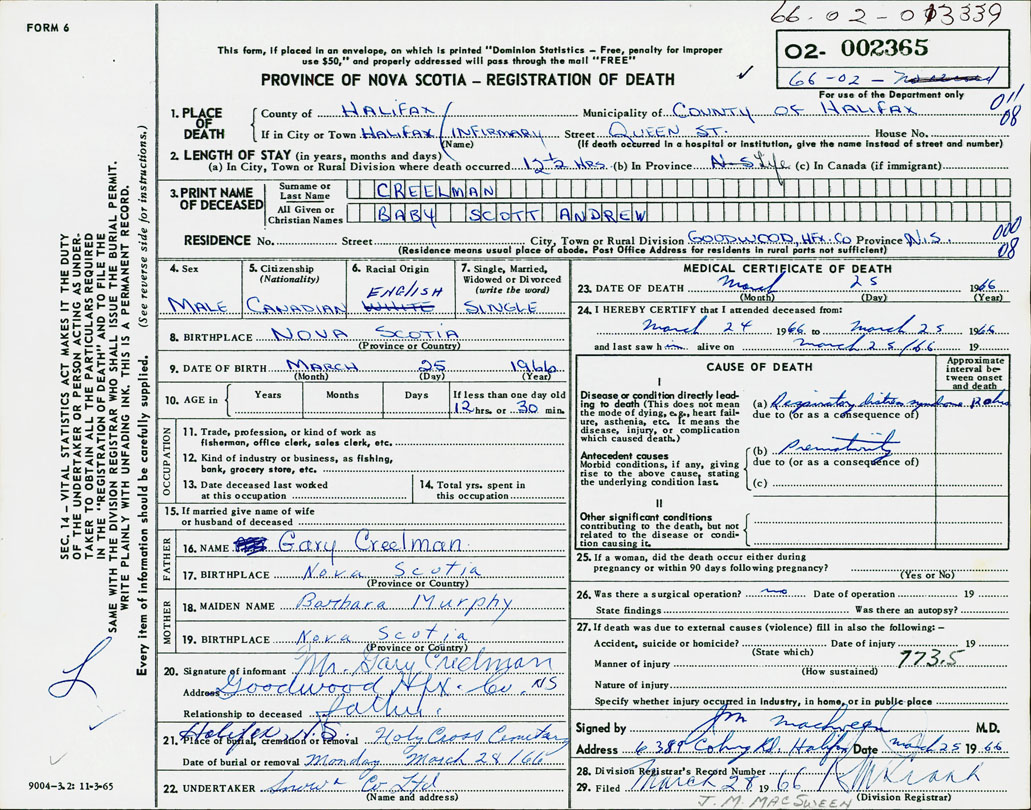 66-02-013339
FORM 6
This form, if placed in an envelope, on which is printed "Dominion Statistics – Free, penalty for improper
use $50," and properly addressed will pass through the mail "FREE"
PROVINCE OF NOVA SCOTIA – REGISTRATION OF DEATH
02- 002365
66-02-
For use of the Department only
011
08
1. PLACE OF DEATH
County of HALIFAX Municipality of COUNTY OF HALIFAX
If in City or Town HALIFAX INFIRMARY (Name) Street QUEEN ST. House No.
(If death occurred in a hospital or institution, give the name instead of street and number)
2. LENGTH OF STAY (in years, months and days)
(a) In City, Town or Rural Division where death occurred 12½ HRS. (b) In Province N-S Life (c) In Canada (if immigrant)
3. PRINT NAME OF DECEASED
Surname or Last Name CREELMAN
All Given or Christian Names BABY SCOTT ANDREW
RESIDENCE No. Street City, Town or Rural Division GOODWOOD, HFX. CO Province N.S.
(Residence means usual place of abode. Post Office Address for residents in rural parts not sufficient)
000
08
4. Sex
MALE
5. Citizenship (Nationality)
CANADIAN
6. Racial Origin
ENGLISH
WHITE
7. Single, Married, Widowed or Divorced (write the word)
SINGLE
8. BIRTHPLACE NOVA SCOTIA
(Province or Country)
9. DATE OF BIRTH MARCH 25 1966
(Month) (Day) (Year)
10. AGE in Years Months Days If less than one day old
12 hrs. or 30 min.
OCCUPATION
11. Trade, profession, or kind of work as
fisherman, office clerk, sales clerk, etc.
12. Kind of industry or business, as fishing,
bank, grocery store, etc.
13. Date deceased last worked
at this occupation
14. Total yrs. spent in
this occupation
15. If married give name of wife
or husband of deceased
FATHER
16. NAME Gary Creelman
17. BIRTHPLACE Nova Scotia
(Province or Country)
MOTHER
18. MAIDEN NAME Barbara Murphy
19. BIRTHPLACE Nova Scotia
(Province or Country)
20. Signature of informant Mr. Gary Creelman
Address Goodwood Hfx. Co. NS
Relationship to deceased father.
Halifax N.S.
21. Place of burial, cremation or removal Holy Cross Cemetary
Date of burial or removal Monday March 28/66
22. UNDERTAKER Snow Co Ltd
(Name and address)
MEDICAL CERTIFICATE OF DEATH
23. DATE OF DEATH March 25 1966
(Month) (Day) (Year)
24. I HEREBY CERTIFY that I attended deceased from:
March 24 1966 to March 25 1966
and last saw him alive on March 25/66 19
CAUSE OF DEATH
Approximate interval between onset and death
I
Disease or condition directly leading
to death (This does not mean
the mode of dying, e.g., heart failure,
asthenia, etc. It means the
disease, injury, or complication
which caused death.)
(a) Respiratory distress syndrome
due to (or as a consequence of)
Antecedent causes
Morbid conditions, if any, giving
rise to the above cause, stating
the underlying condition last.
(b) Prematurity
due to (or as a consequence of)
(c)
II
Other significant conditions
contributing to the death, but not
related to the disease or condition
causing it.
25. If a woman, did the death occur either during
pregnancy or within 90 days following pregnancy?
(Yes or No)
26. Was there a surgical operation? no Date of operation 19
State findings Was there an autopsy?
27. If death was due to external causes (violence) fill in also the following: –
Accident, suicide or homicide? Date of injury 19
(State which)
Manner of injury 773.5
(How sustained)
Nature of injury
Specify whether injury occurred in industry, in home, or in public place
Signed by J M MacSween M.D.
Address 6389 Coburg Rd. Halifax Date March 25 1966
28. Division Registrar's Record Number
29. Filed March 28 1966
(Division Registrar)
J. M. MACSWEEN
SEC. 14 – VITAL STATISTICS ACT MAKES IT THE DUTY
OF THE UNDERTAKER OR PERSON ACTING AS UNDERTAKER
TO OBTAIN ALL THE PARTICULARS REQUIRED
IN THE "REGISTRATION OF DEATH" AND TO FILE THE
SAME WITH THE DIVISION REGISTRAR WHO SHALL ISSUE THE BURIAL PERMIT.
WRITE PLAINLY WITH UNFADING INK. THIS IS A PERMANENT RECORD.
Every item of information should be carefully supplied. (See reverse side for instructions.)
9004-3.2: 11-3-65